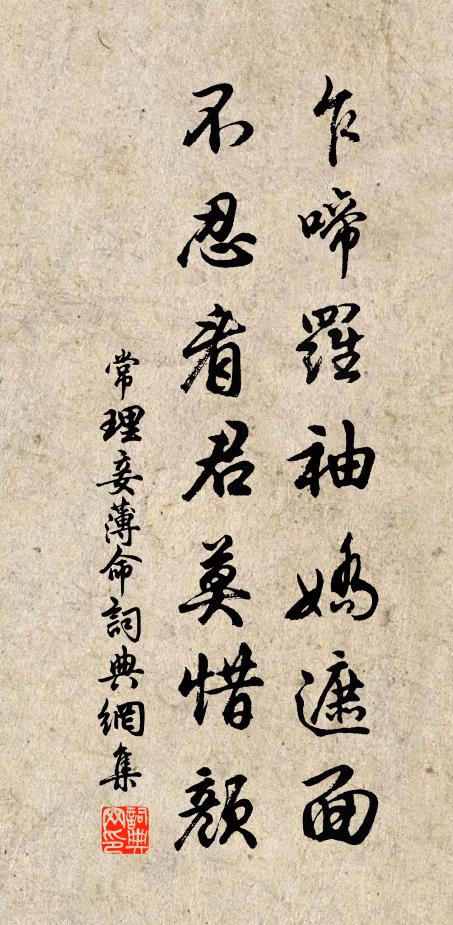 乍啼羅袖嬌遮面
不忍看君莫惜顏
常理妾薄命詞典網集
詞典網印